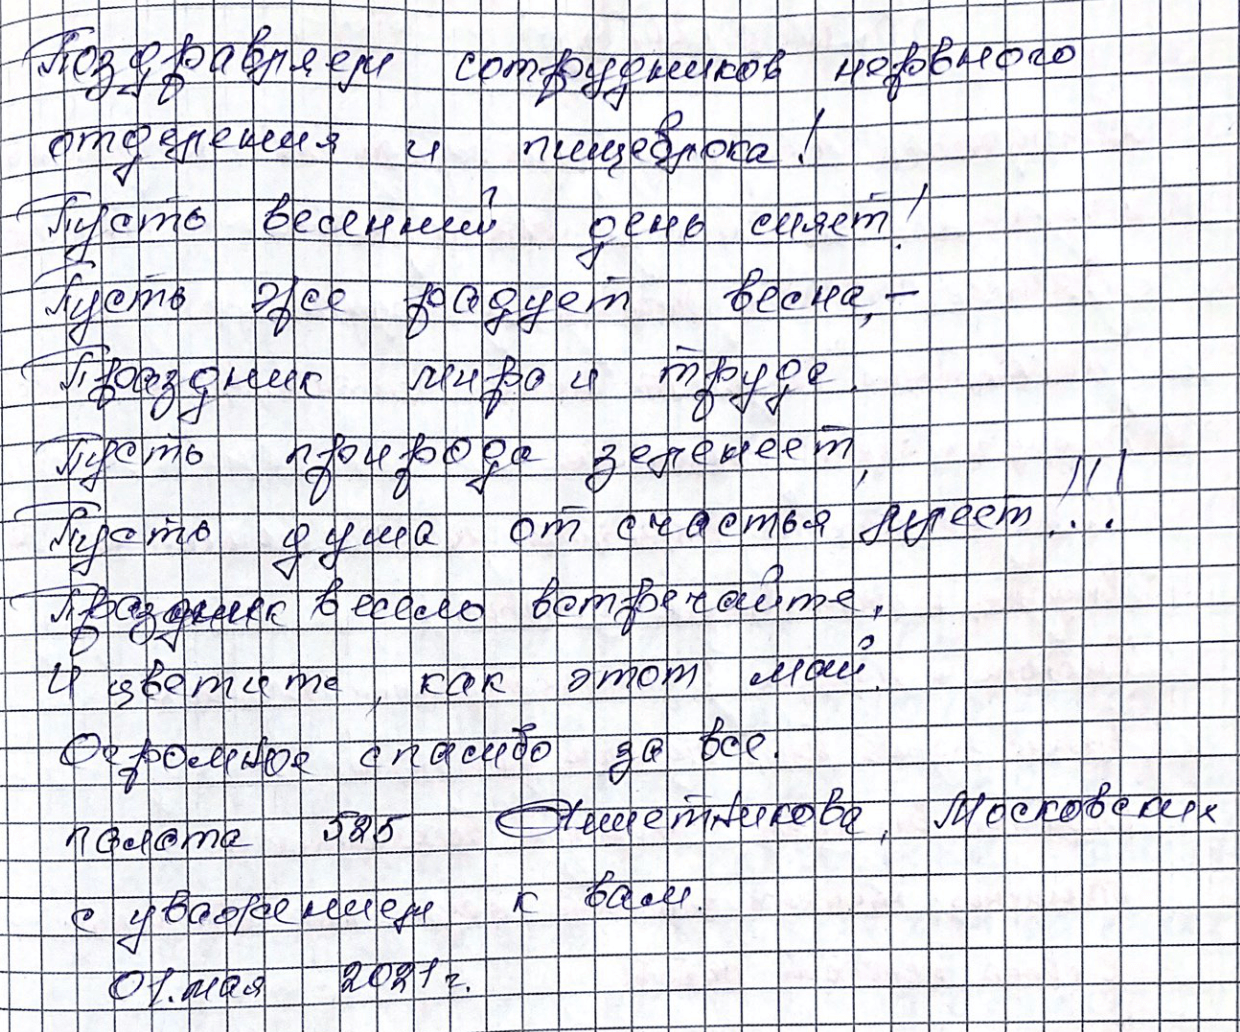 Поздравляем сотрудников нервного
отделения и пищеблока!
Пусть весенний день сияет!
Пусть же радует весна, –
Праздник мира и труда
Пусть природа зеленеет,
Пусть душа от счастья млеет!!!
Праздник весело встречайте,
И цветите, как этот май.
Огромное спасибо за все.
палата 525 Московских
с уважением к вам.
01. мая 2021 г.